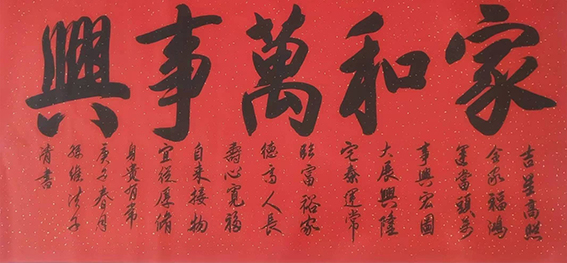 家和萬事興
吉星高照
全家福鴻
運當頭萬
事興宏圖
大展興隆
宅泰運常
旺富裕家
德高人長
壽心寬福
自來接物
宜從厚脩
身貴有常
庚子春月
孫維
書